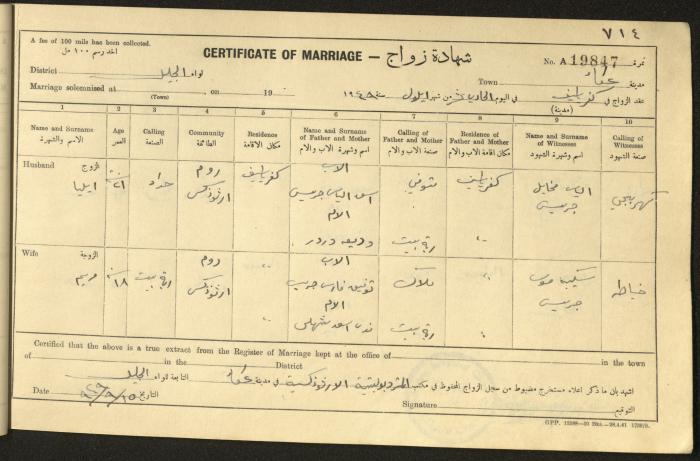 ٧١٤
A fee of 100 mils has been collected.
أخذ رسم ١٠٠ مل
CERTIFICATE OF MARRIAGE — شهادة زواج
No. A 19847 نمرة
District لواء الجليل
Town مدينة عكا
Marriage solemnised at , on 19
(Town)
عقد الزواج في كفرياسيف في اليوم من شهر ايلول سنة
(مدينة)
1 2 3 4 5 6 7 8 9 10
Name and Surname
الاسم والشهرة
Age
العمر
Calling
الصنعة
Community
الطائفة
Residence
مكان الاقامة
Name and Surname of Father and Mother
اسم وشهرة الاب والام
Calling of Father and Mother
صنعة الاب والام
Residence of Father and Mother
مكان اقامة الاب والام
Name and Surname of Witnesses
اسم وشهرة الشهود
Calling of Witnesses
صنعة الشهود
Husband الزوج
ايليا
٢١ سنة
حداد
روم
ارثوذكس
كفرياسيف
الاب
اسعد الياس جريس
الام
وديعه دردر
متوفي
ربة بيت
كفرياسيف
"
الياس مخايل
جريس
كهربجي
Wife الزوجة
مريم
١٨ سنة
ربة بيت
روم
ارثوذكس
"
الاب
توفيق فارس جريس
الام
اسعد
ملاك
ربة بيت
"
"
جريس
خياطه
Certified that the above is a true extract from the Register of Marriage kept at the office of in the town
of in the District
اشهد بان ما ذكر اعلاه مستخرج مضبوط من سجل الزواج المحفوظ في مكتب المطربوليتية الارثوذكسية في مدينة عكا التابعة للواء الجليل
Date التاريخ
Signature التوقيع